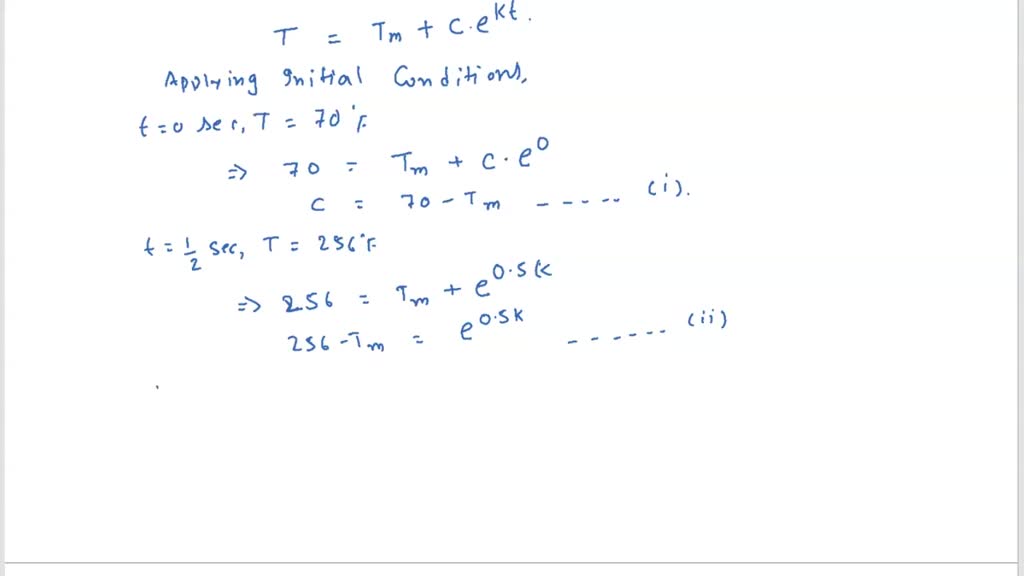 T = Tm + C.e^kt.
Applying Initial Conditions,
t=0 sec, T = 70°F.
=> 70 = Tm + C.e^0
C = 70 - Tm ----- (i).
t = 1/2 sec, T = 256°F.
=> 256 = Tm + e^0.5k
256 - Tm = e^0.5k ------ (ii)